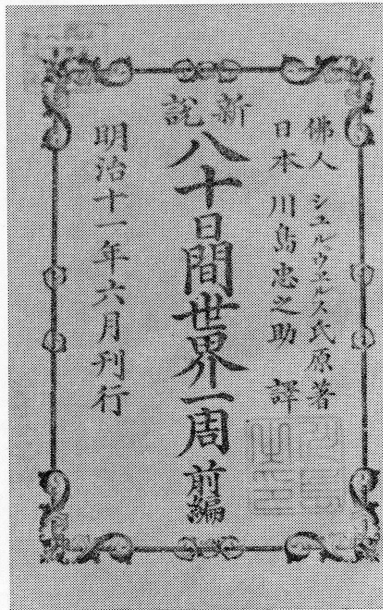 佛人 シユルウエルス氏原著
日本 川島忠之助 譯
新説
八十日間世界一周 前編
明治十一年六月刊行